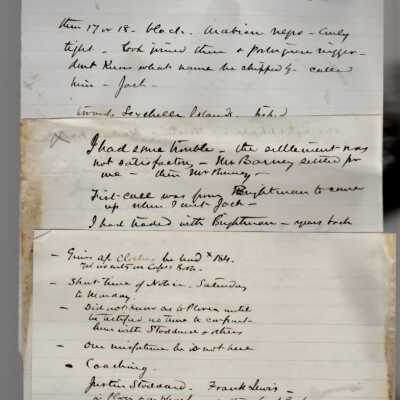 then 17 or 18 - black - Arabian negro - Curly
tight - Cook joined them a Portuguese nigger -
dont know what name he shipped by - called
him - Jack -
towards Seychelle Islands. fish'd
I had some trouble - the settlement was
not satisfactory - Mr Barney settled for
me - then Mr Kinney -
First call was from Brightman to come
up when I met Jack -
I had traded with Brightman - years back
- Gives a/c clothing he had
- Short time of Notice. Saturday
to Monday.
- Did not know as to Plover until
he testified no time to confront
him with Stoddard & others
- Our misfortune he is not here
- Coaching.
Justin Stoddard. Frank Lewis -